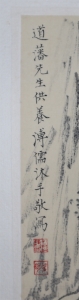 道藩先生供養溥儒沐手敬寫